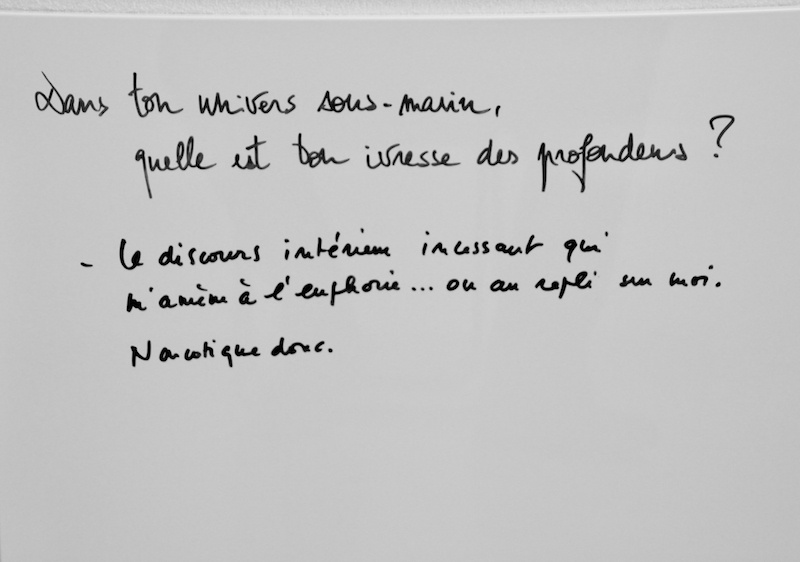 Dans ton univers sous-marin,
quelle est ton ivresse des profondeurs ?
- Le discours intérieur incessant qui
m'amène à l'euphorie... ou au repli sur moi.
Narcotique donc.